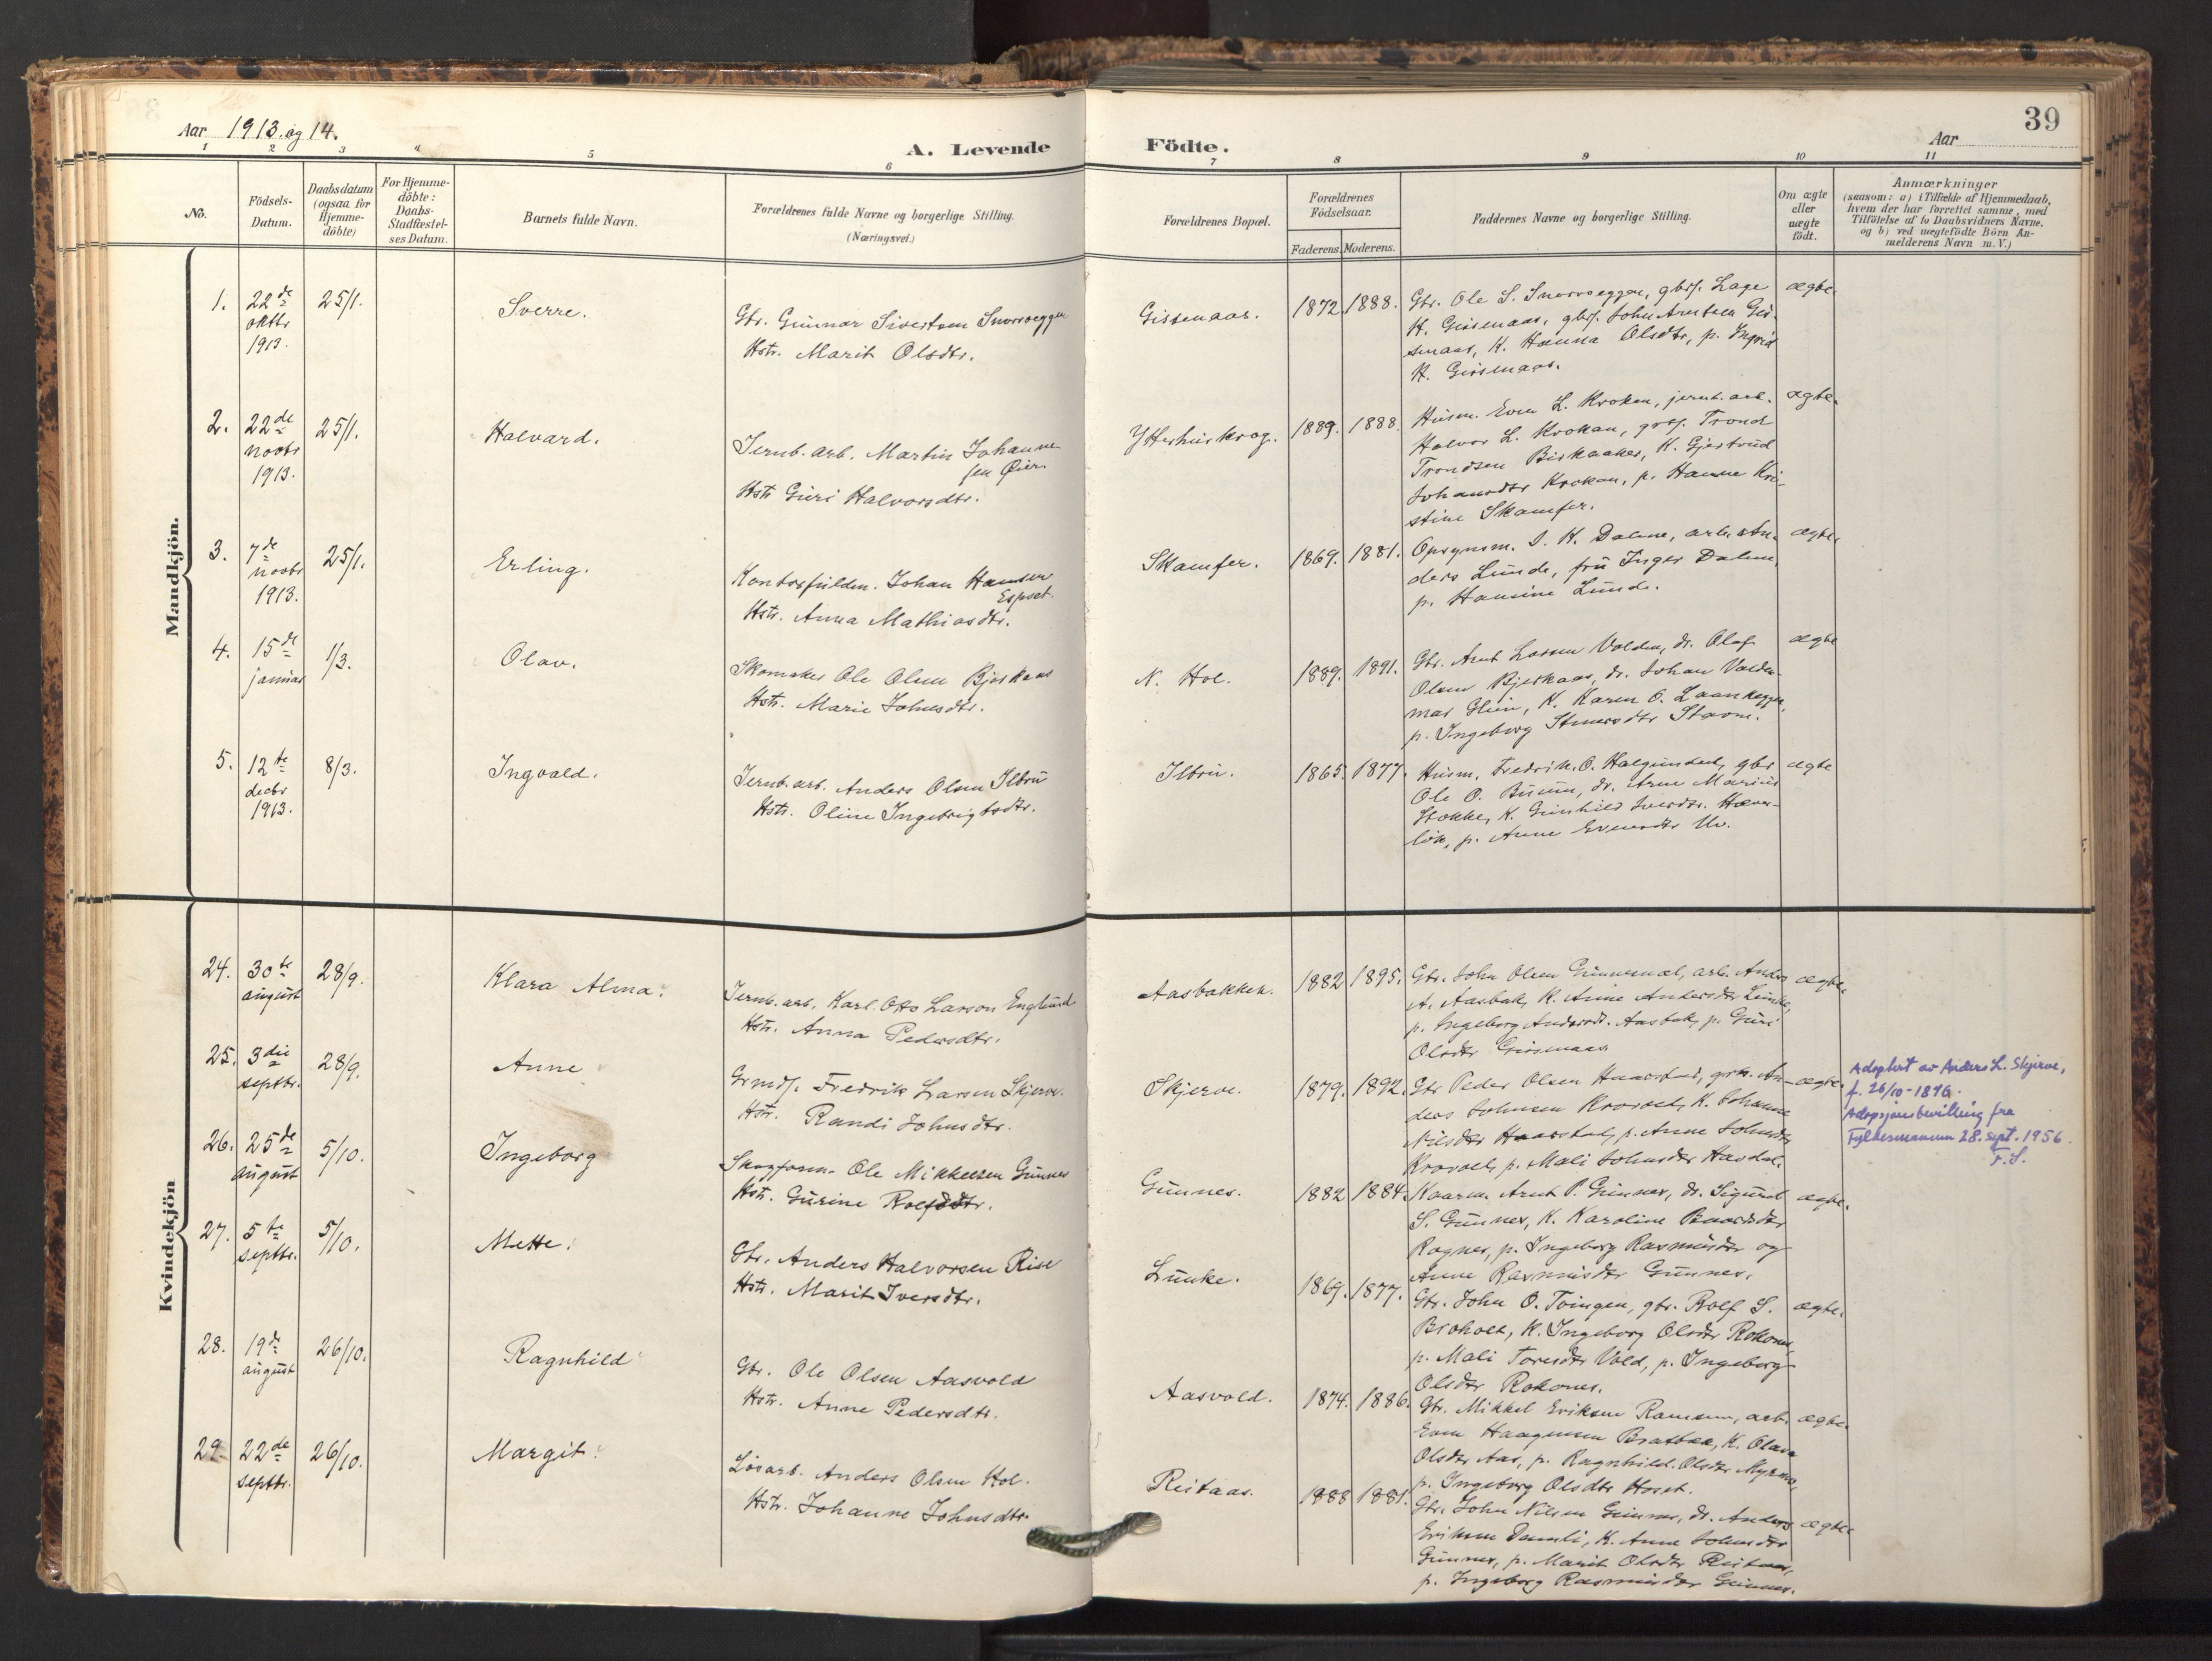 Aar 1913 og 14.
A. Levende Födte.
Aar
39
1 2 3 4 5 6 7 8 9 10 11
No.
Födsels-
Datum.
Daabsdatum
(ogsaa for
Hjemme-
döbte)
For Hjemme-
döbte:
Daabs-
Stadfæstel-
ses Datum.
Barnets fulde Navn.
Forældrenes fulde Navne og borgerlige Stilling.
(Næringsvei.)
Forældrenes Bopæl.
Forældrenes
Födselsaar.
Faderens. Moderens.
Faddernes Navne og borgerlige Stilling.
Om ægte
eller
uægte
födt.
Anmærkninger
(saasom: a) i Tilfælde af Hjemmedaab,
hvem der har forrettet samme, med
Tilföielse af to Daabsvidners Navne,
og b) ved uægtefödte Börn An-
melderens Navn m. V.)
Mandkjön.
1.
22de
oktbr
1913.
25/1.
Sverre.
Gbr. Gunnar Sivertsen Snorroeggen
Hstr. Marit Olsdtr.
Gissenaas.
1872. 1888.
Gbr. Ole S. Snorroeggen, gbrs. Lage
K. Gissenaas, gbrs. John Arntsen Gis-
senaas, K. Hanna Olsdtr, p. Ingrid
K. Gissenaas.
ægte.
2.
22de
novbr
1913.
25/1.
Halvard.
Jernb. arb. Martin Johanne-
sen Øien
Hstr Guri Halvorsdtr.
Ytterhuskrog.
1889. 1888.
Husm. Even L. Kroken, jernb. arb.
Halvor L. Krokan, gbrs. Trond
Trondsen Biskaaker, K. Gjertrud
Johansdtr Krokan, p. Hanne Kri-
stine Skamfer.
ægte.
3.
7de
novbr
1913.
25/1.
Erling.
Kontorfuldm. Johan Hansen
Espset.
Hstr. Anna Mathiasdtr.
Skamfer.
1869. 1881.
Opsynsm. I. K. Dalene, arb. An-
ders Lunde, fru Inger Dalen,
p. Hansine Lunde.
ægte.
4.
15de
januar
1/3.
Olav.
Skomaker Ole Olsen Bjerkaas
Hstr. Marie Johnsdtr.
N. Hol.
1889. 1891.
Gbr. Arnt Larsen Volden, dr. Olaf
Olsen Bjerkaas, dr. Johan Valde-
mar Glein, K. Karen O.
p. Ingeborg
ægte
5.
12te
decbr
1913.
8/3.
Ingvald.
Jernb. arb. Anders Olsen Ilbru
Hstr. Oline Ingebrigtsdtr.
Ilbru.
1865. 1877.
Husm. Fredrik O. Halgunset, gbr
Ole O. Buum, dr. Arne Marius
Stokke, K. Gunhild Iversdtr. Hæver-
lök, p. Anne Evensdtr Mo.
ægte
Kvindekjön
24.
30te
august
28/9.
Klara Alma.
Jernb. arb. Karl Otto Larson Englund
Hstr. Anna Pedersdtr.
Aasbakken.
1882 1895.
Gbr. John Olsen Gunnesmæl, arb. Anders
A. Aasbak, K. Anne Andersdtr Lunke,
p. Ingeborg Andersdt. Aasbak, p. Guri
Olsdtr Gissenaas.
ægte.
25.
3die
septbr.
28/9.
Anne
Grmds. Fredrik Larsen Skjerve.
Hstr. Randi Johnsdtr.
Skjerve.
1879. 1892.
Gbr Peder Olsen Haarstad, grk. An-
ders Johnsen Kroovel, K. Johanne
Nilsdtr Haarstad, p. Anne Johnsdtr
Kroovel, p. Mali Johnsdtr Havdal.
ægte.
Adoptert av Anders L. Skjerve,
f. 26/10-1896.
Adopsjonsbevilling fra
Fylkesmannen 28. sept. 1956.
T.S.
26.
25de
august
5/10.
Ingeborg
Skogform. Ole Mikkelsen Gunnes
Hstr. Gurine Rolfsdtr.
Gunnes.
1882 1884.
Kaarm. Arnt P. Gunnes, dr. Sigurd
S. Gunnes, K. Karoline Baardsdtr
Rognes, p. Ingeborg Rasmusdtr og
Anne Rasmusdtr Gunnes.
ægte.
27.
5te
septbr.
5/10.
Mette.
Gbr. Anders Halvorsen Rise
Hstr. Marit Iversdtr.
Lunke.
1869. 1877.
Gbr. John O. Tvingen, gbr. Rolf S.
Broholt, K. Ingeborg Olsdtr Rokones,
p. Mali Toresdtr Vold, p. Ingeborg
Olsdtr Rokones.
ægte.
28.
19de
august
26/10.
Ragnhild
Gbr. Ole Olsen Aasvold
Hstr. Anne Pedersdtr.
Aasvold.
1874. 1886.
Gbr. Mikkel Eriksen Ramsem, arb.
Even Haagensen Bratbak, K. Olava
Olsdtr Aas, p. Ragnhild Olsdtr Myrmo,
p. Ingeborg Olsdtr Hoset.
ægte.
29.
22de
septbr.
26/10.
Margit.
Lösarb. Anders Olsen Hol.
Hstr. Johanne Johnsdtr.
Reitaas.
1888 1881.
Gbr. John Nilsen Gunnes, dr. Anders
Eriksen Damli, K. Anne Johnsdtr
Gunnes, p. Marit Olsdtr Reitaas,
p. Ingeborg Rasmusdtr Gunnes.
ægte.